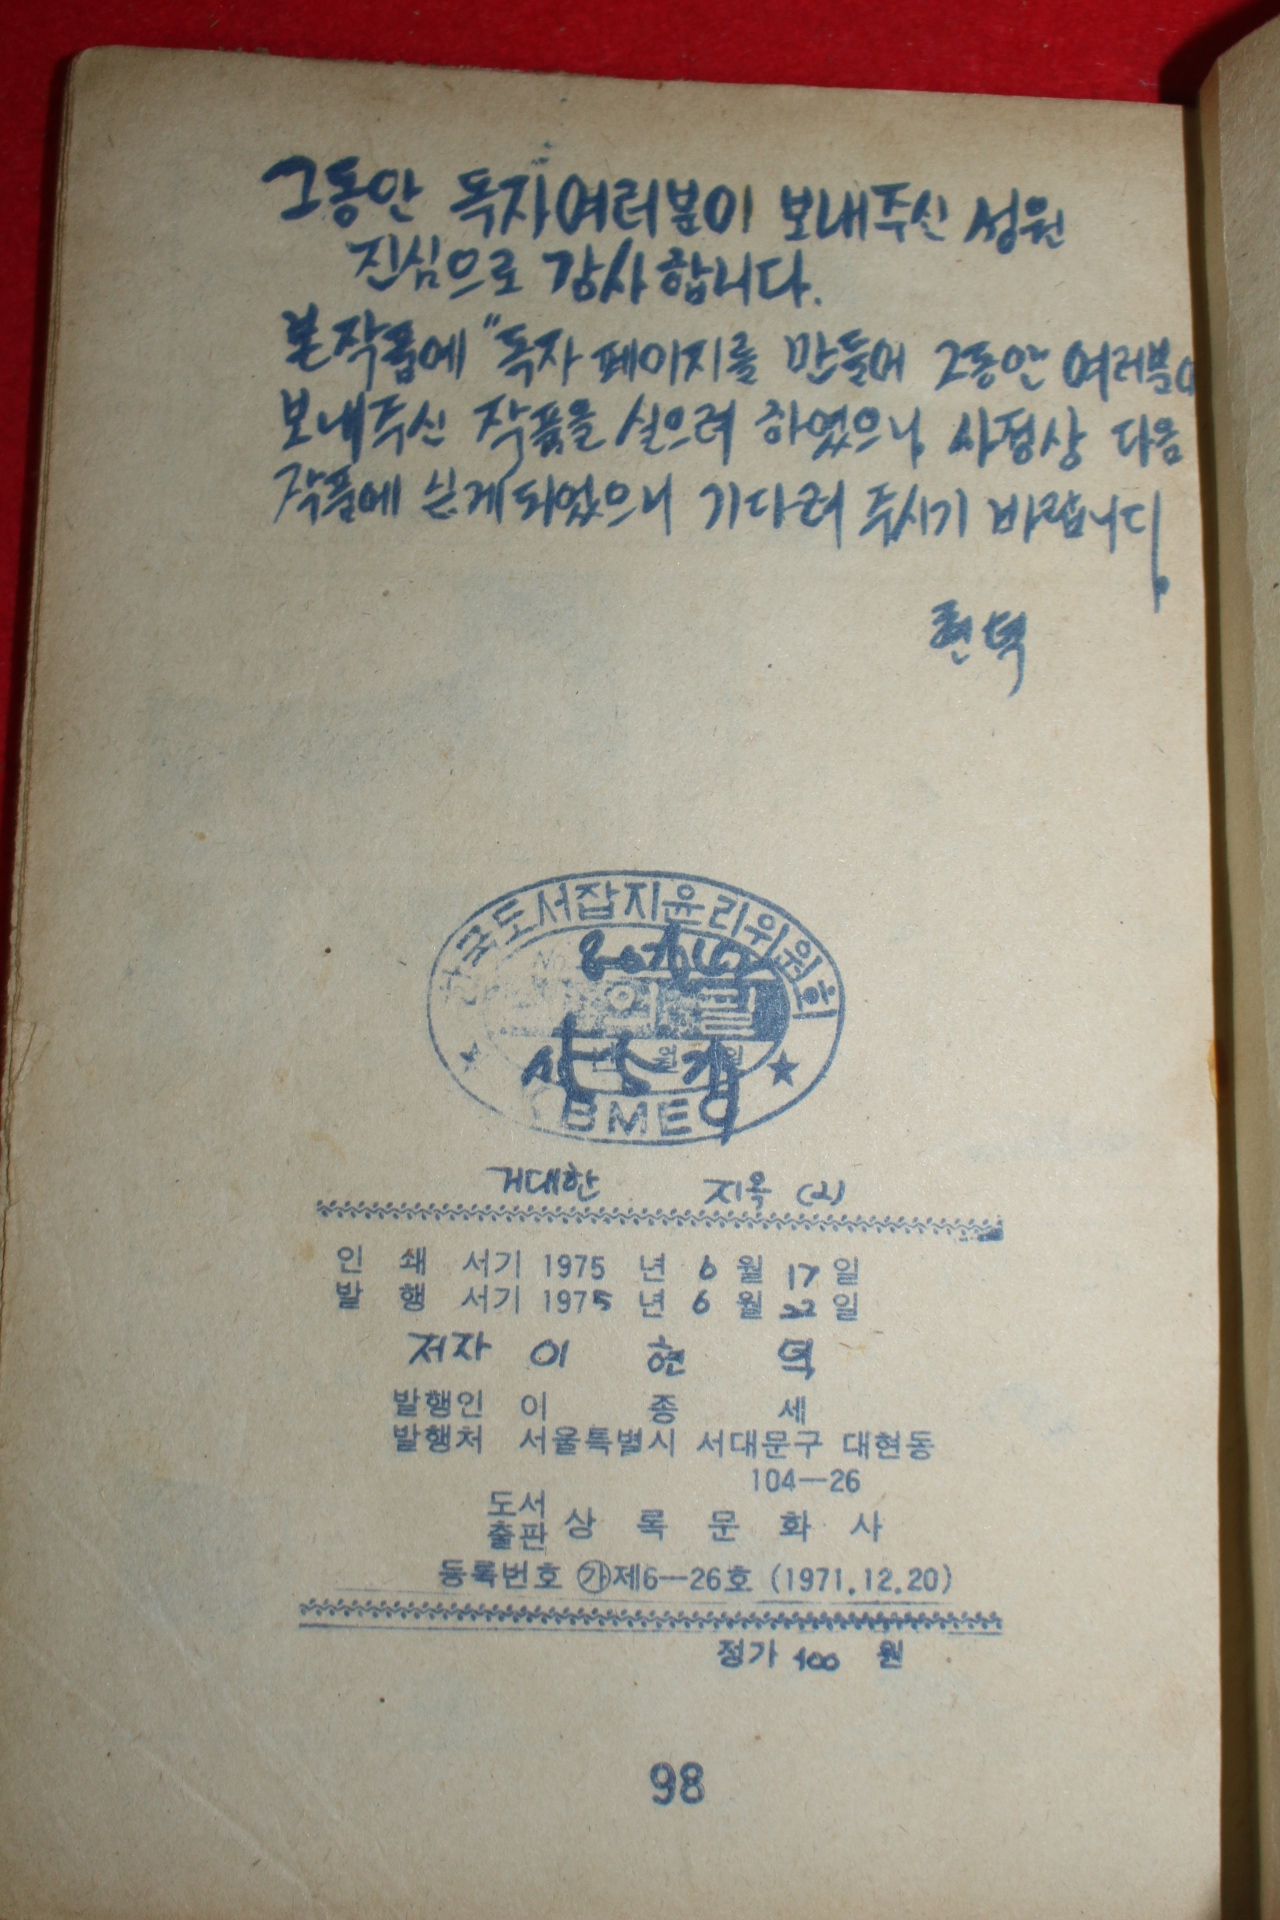 그동안 독자여러분이 보내주신 성원
진심으로 감사합니다.
본작품에 "독자 페이지를 만들어 그동안 여러분이
보내주신 작품을 실으려 하였으나, 사정상 다음
작품에 싣게되었으니 기다려 주시기 바랍니다
현덕
한국도서잡지윤리위원회
필
BMEC
거대한 지옥 (2)
인 쇄 서기 1975 년 6 월 17 일
발 행 서기 1975 년 6 월 22 일
저자 이 현 덕
발행인 이 종 세
발행처 서울특별시 서대문구 대현동
104—26
도서
출판 상 록 문 화 사
등록번호 ㉮제6—26호 (1971.12.20)
정가 100 원
98